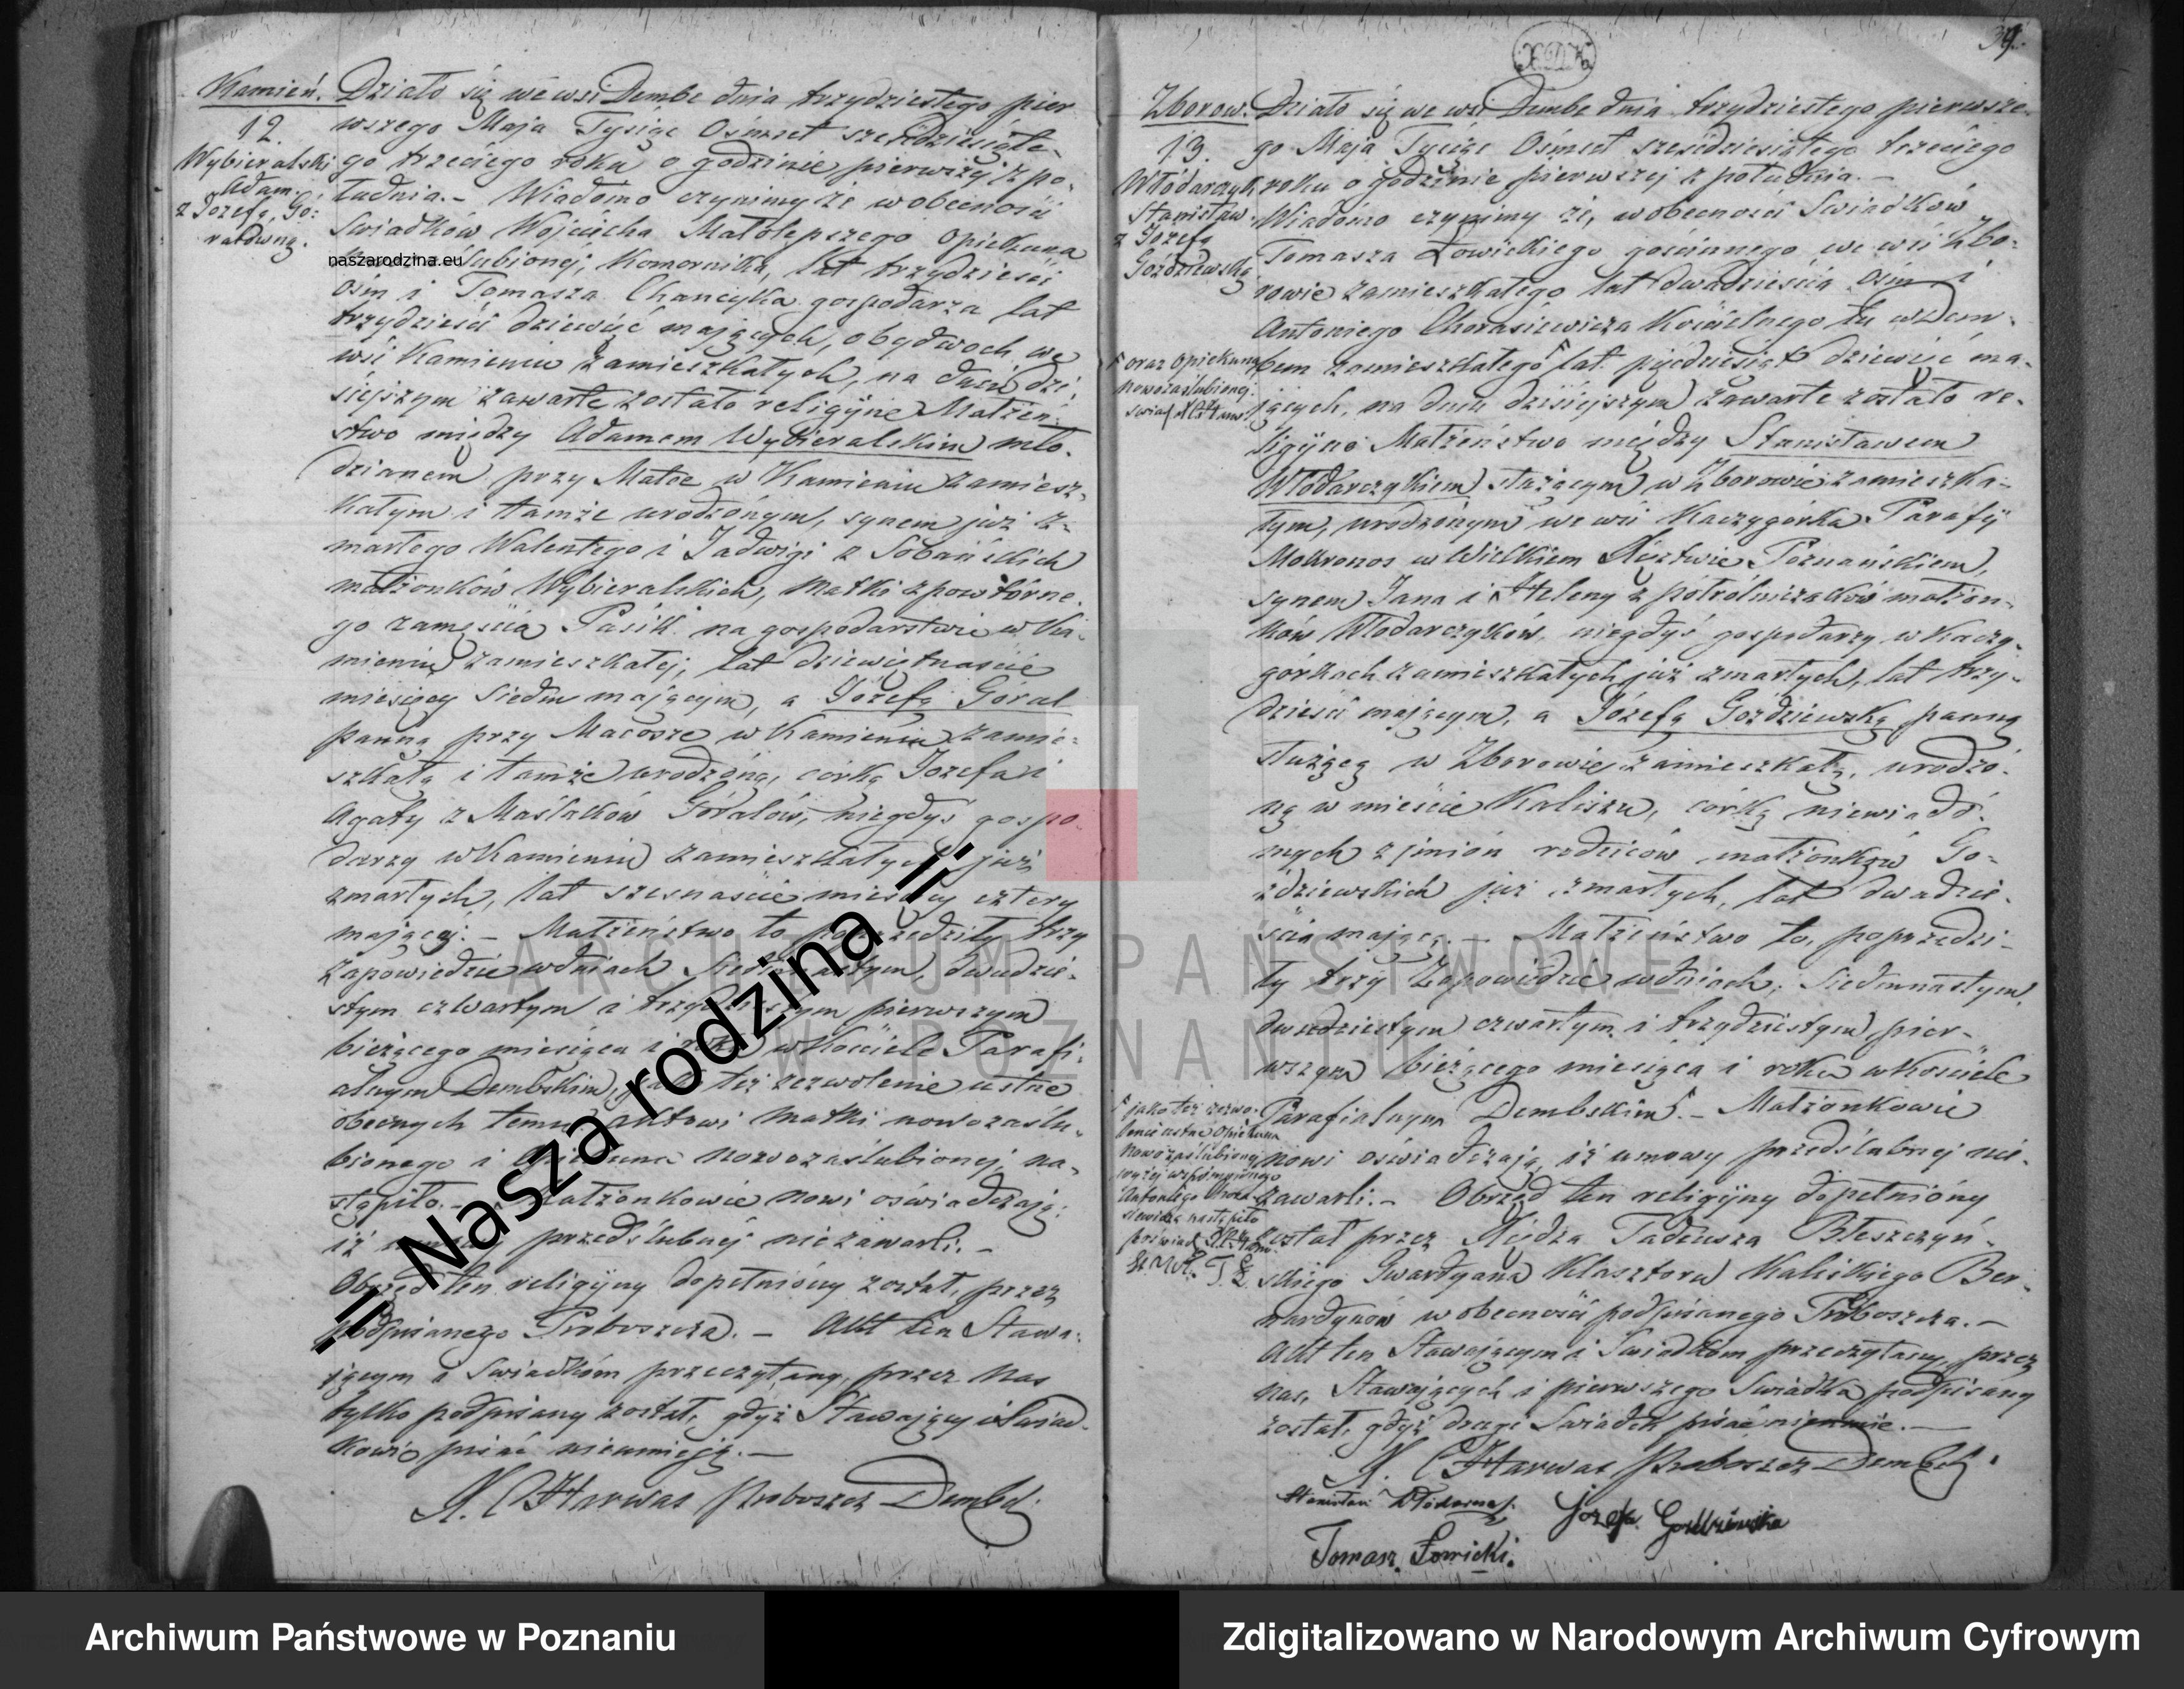 Kamień.
12.
Wybieralski
Adam.
z Józefą Gó-
ralówną.
Działo się we wsi Dembe dnia trzydziestego pier
wszego Maja Tysiąc Ośmset sześćdziesiąte-
go trzeciego roku o godzinie pierwszej z po-
łudnia.- Wiadomo czynimy że w obecności
Swiadków Wojciecha Małolepszego opiekuna
naszarodzina.eu
ślubionej, Komornika, lat trzydzieści
ośm i Tomasza Chańcyka gospodarza lat
trzydzieści dziewięć mających, obydwoch we
wsi Kamieniu zamieszkałych, na dniu dzi
siejszym zawarte zostało religijne Małżeń-
stwo między Adamem Wybieralskim mło-
dzianem przy Matce w Kamieniu zamiesz-
kałym i tamże urodzonym, synem już z-
marłego Walentego i Jadwigi z Sobańskich
małżonków Wybieralskich, Matki z powtórne
go zamęścia Pasik na gospodarstwie w Ka-
mieniu zamieszkałej, lat dziewiętnaście
miesięcy siedm mającym, a Józefą Goral
panną przy Macosze w Kamieniu zamie-
szkałą i tamże urodzoną, córką Jozefa i
Agaty z Maślaków Góralów, niegdyś gospo-
darzy w Kamieniu zamieszkałych już
zmarłych, lat szesnaście miesięcy cztery
mającej. - Małżeństwo to poprzedziły trzy
zapowiedzie w dniach siedmnastym, dwudzie-
stym czwartym i trzydziestym pierwszym
bieżącego miesiąca i roku w Kościele Parafi-
alnym Dembskim, jako też zezwolenie ustne
obecnych temu Aktowi Matki nowozaślu-
bionego i Opiekuna nowozaślubionej na-
stąpiło.- Małżonkowie nowi oświadczają:
iż umowy przedślubnej niezawarli. -
Obrzęd ten religijny dopełniony został, przez
podpisanego Proboszcza. - Akt ten Stawa-
jącym i Swiadkom przeczytany, przez nas
tylko podpisany został, gdyż Stawający i Swiad-
kowie pisać nieumieją. -
X. C Harwas Proboszcz Dembsk:
= Nasza rodzina =
39.
Zborow.
13.
Włodarczyk
Stanisław
z Józefą
Goździewską
Działo się we wsi Dembe dnia trzydziestego pierwsze-
go Maja Tysiąc Ośmset sześćdziesiątego trzeciego
roku o godzinie pierwszej z południa. -
Wiadomo czynimy że, w obecności Swiadków
Tomasza Łowickiego gościnnego we wsi Zbo-
rowie zamieszkałego lat dwadzieścia ośm i
Antoniego Chorasiewicza Kościelnego tu w Dem-
bem zamieszkałego lat pięćdziesiąt dziewięć ma-
oraz opiekuna
nowozaślubionej
jących, na dniu dzisiejszym zawarte zostało re-
ligijne Małżeństwo między Stanisławem
Włodarczykiem służącym w Zborowie zamieszka-
łym, urodzonym we wsi Kaczygórka Parafij
Mokronos w Wielkiem Księztwie Poznańskiem,
synem Jana i Heleny z półrolniczaków małżon-
ków Włodarczyków, niegdyś gospodarzy w Kaczy-
górkach zamieszkałych już zmarłych, lat trzy-
dzieści mającym, a Józefą Goździewską panną
służącą w Zborowie zamieszkałą, urodzo-
ną w mieście Kaliszu, córką niewiado-
mych z imion rodziców małżonków Go-
ździewskich już zmarłych, lat dwadzie-
ścia mającą. - Małżeństwo to, poprzedzi-
ły trzy Zapowiedzie w dniach: siedmnastym,
dwudziestym czwartym i trzydziestym pier-
wszym bieżącego miesiąca i roku w Kościele
Parafialnym Dembskim. - Małżonkowie
jako też zezwo-
lenie ustne opiekuna
nowozaślubionej
wyżej wspomnionego
Antoniego Chora-
siewicza nastąpiło
nowi oświadczają, iż umowy przedślubnej nie-
zawarli.- Obrzęd ten religijny dopełniony
został przez Xiędza Tadeusza Błeszczyń-
skiego Gwardyana Klasztoru Kaliskiego Ber-
nardynów w obecności podpisanego Proboszcza. -
Akt ten Stawającym i Swiadkom przeczytany, przez
nas, Stawających i pierwszego Swiadka podpisany
został, gdyż drugi Swiadek pisać nieumie. -
X. C Harwas Proboszcz Dembsk:
Stanisław Włodarczyk
Józefa Goździewska
Tomasz Łowicki.
ARCHIWUM PAŃSTWOWE
W POZNANIU
Archiwum Państwowe w Poznaniu
Zdigitalizowano w Narodowym Archiwum Cyfrowym